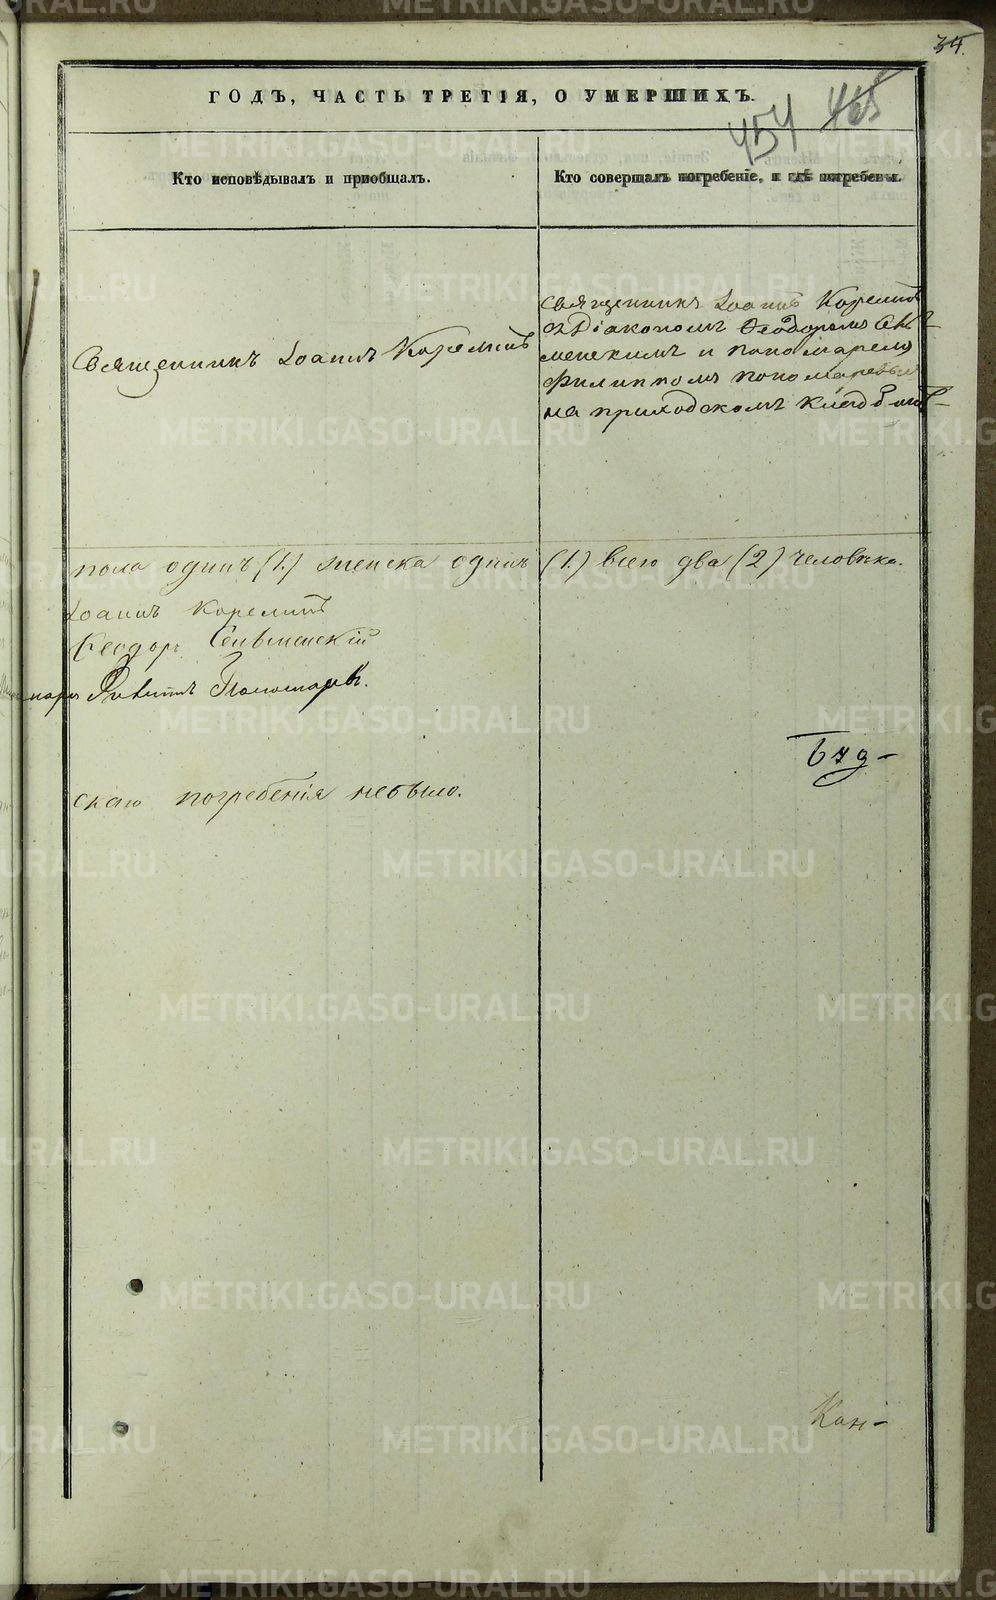 34.
ГОДЪ, ЧАСТЬ ТРЕТІЯ, О УМЕРШИХЪ.
454 465
Кто исповѣдывалъ и пріобщалъ.
Кто совершалъ погребеніе, и гдѣ погребены.
Священникъ Іоаннъ Корелинъ
Священникъ Іоаннъ Корелинъ
съ Діакономъ Ѳеодоромъ
менскимъ и пономаремъ
Филиппомъ Пономаревымъ
на приходскомъ кладбищѣ
пола одинъ (1.) женска одинъ (1.) всего два (2) человѣка.
Іоаннъ Корелинъ
Ѳеодоръ
Филиппъ Пономаревъ.
скаго погребенія небыло.
Кон-
METRIKI.GASO-URAL.RU